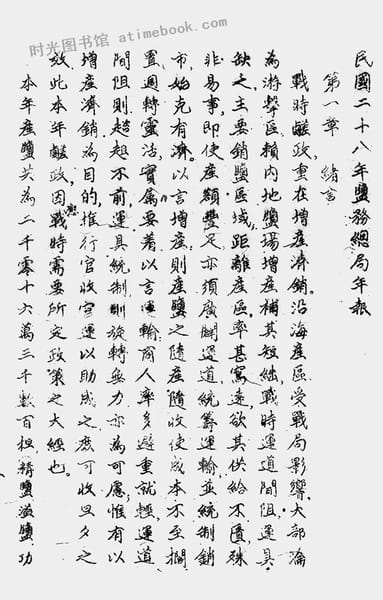 时光图书馆 www.atimebook.com
民國二十八年鹽務總局年報
第一章 緒言
戰時鹺政,重在增產濟銷,沿海產區受戰局影響,大部淪
為游擊區,賴內地鹽場增產補其短絀,戰時運道間阻,運具
缺乏,主要銷鹽區域,距離產區率甚寫遠,欲其供給不匱,殊
非易事,即使產額豐足,亦須廣闢運道,統籌運輸,並統制銷
市,始克有濟,以言增產,則產鹽之隨產隨收,使成本不至擱
置,週轉靈活,實屬要著,以言運輸,商人率多避重就輕,運道
間阻則趦趄不前,運具統制則旋轉無力,亦為可慮,惟有以
增產濟銷為目的,推行官收官運以助成之,庶可收旦夕之
效,此本年鹺政,因應戰時需要所定政策之大經也。
本年產鹽共為二千零十六萬三千數百担,精鹽滋鹽功